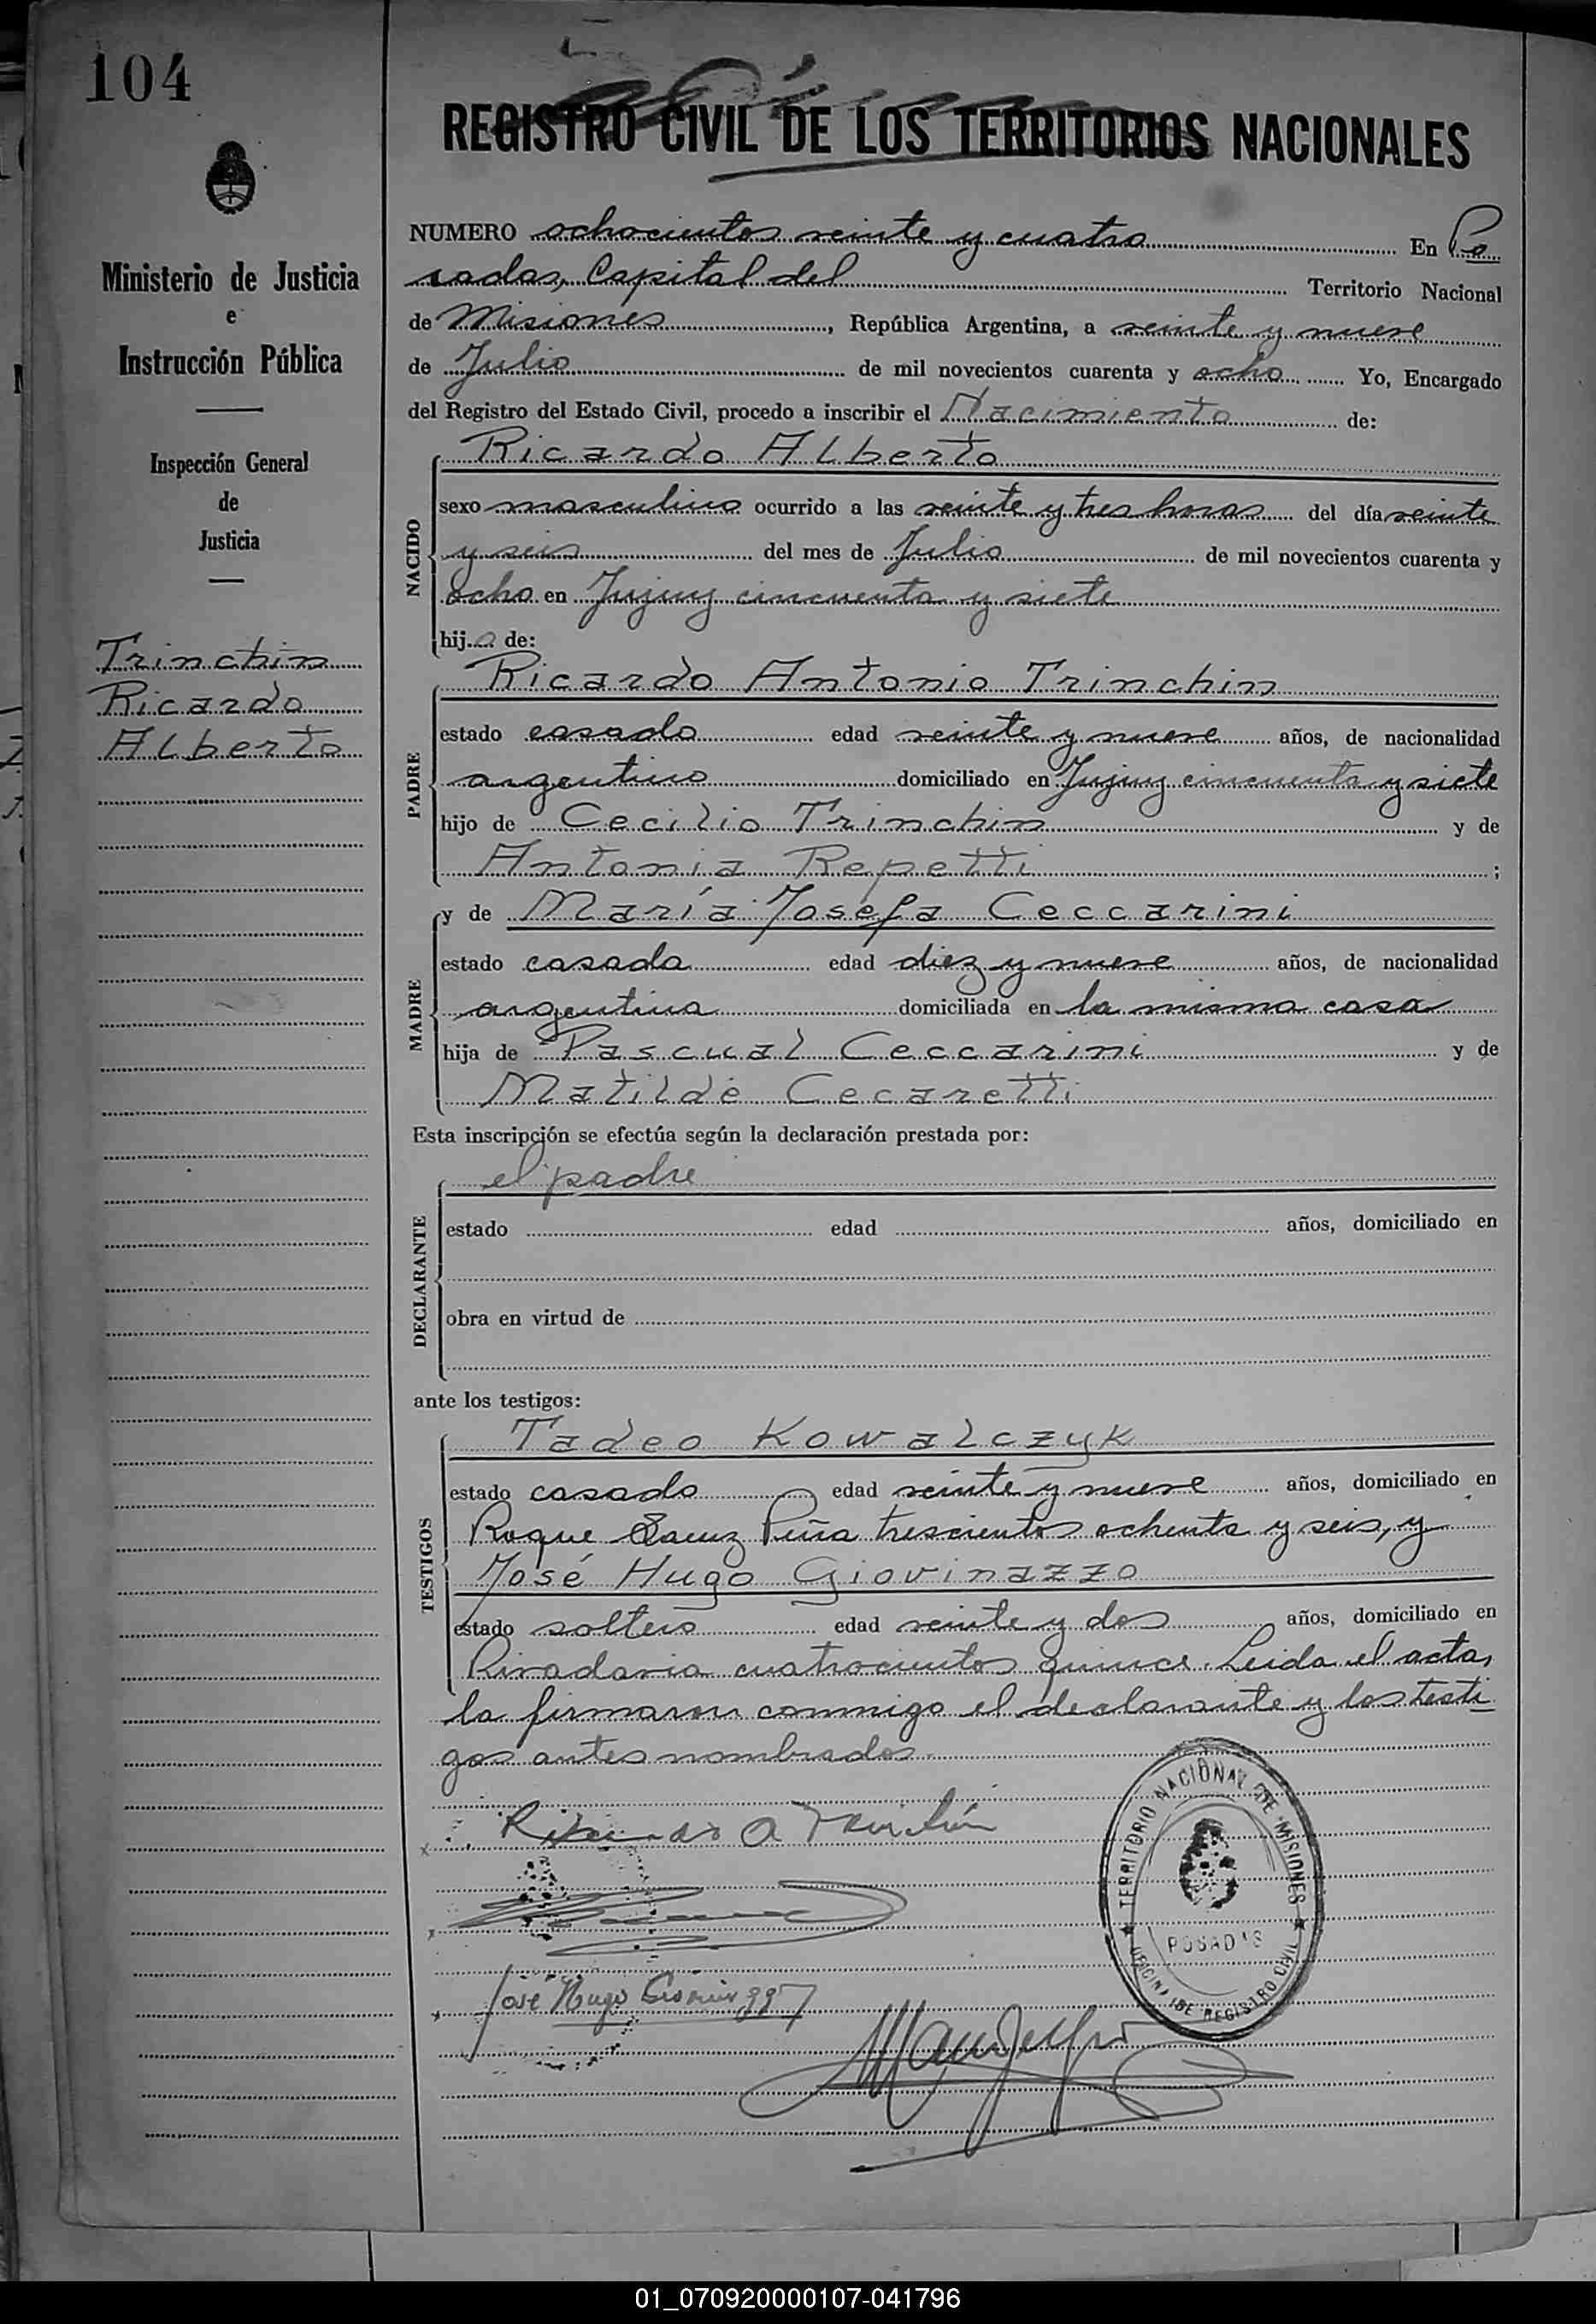 104
REGISTRO CIVIL DE LOS TERRITORIOS NACIONALES
Ministerio de Justicia
e
Instrucción Pública
Inspección General
de
Justicia
Trinchin
Ricardo
Alberto
NUMERO ochocientos veinte y cuatro En Po
sadas, Capital del Territorio Nacional
de Misiones, República Argentina, a veinte y nueve
de Julio de mil novecientos cuarenta y ocho Yo, Encargado
del Registro del Estado Civil, procedo a inscribir el Nacimiento de:
NACIDO
Ricardo Alberto
sexo masculino ocurrido a las veinte y tres horas del día veinte
y seis del mes de Julio de mil novecientos cuarenta y
ocho en Jujuy cincuenta y siete
hijo de:
PADRE
Ricardo Antonio Trinchin
estado casado edad veinte y nueve años, de nacionalidad
argentino domiciliado en Jujuy cincuenta y siete
hijo de Cecilio Trinchin y de
Antonia Repetti ;
MADRE
y de María Josefa Ceccarini
estado casada edad diez y nueve años, de nacionalidad
argentina domiciliada en la misma casa
hija de Pascual Ceccarini y de
Matilde Cecaretti
Esta inscripción se efectúa según la declaración prestada por:
DECLARANTE
el padre
estado edad años, domiciliado en
obra en virtud de
ante los testigos:
TESTIGOS
Tadeo Kowalczyk
estado casado edad veinte y nueve años, domiciliado en
Roque Saenz Peña trescientos ochenta y seis, y
José Hugo Giovinazzo
estado soltero edad veinte y dos años, domiciliado en
Rivadavia cuatrocientos quince. Leida el acta,
la firmaron conmigo el declarante y los testi
gos antes nombrados.
Ricardo A Trinchín
José Hugo Giovinazzo
TERRITORIO NACIONAL DE MISIONES
POSADAS
OFICINA DE REGISTRO CIVIL
01_070920000107-041796